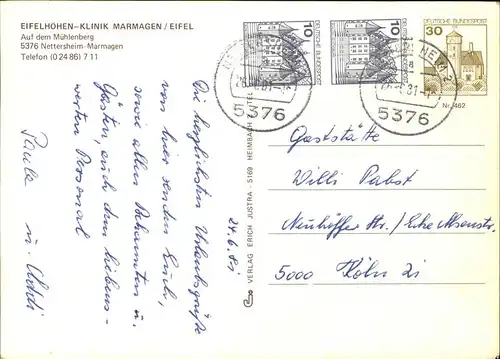 EIFELHÖHEN-KLINIK MARMAGEN / EIFEL
Auf dem Mühlenberg
5376 Nettersheim-Marmagen
Telefon (0 24 86) 7 11
24.6.81
Die herzlichsten Urlaubsgrüße
von hier senden Euch,
sowie allen Bekannten u.
Gästen, auch dem liebens-
werten Personal
Paule u. Addi
VERLAG ERICH JUSTRA · 5169 HEIMBACH
10
DEUTSCHE BUNDESPOST
10
DEUTSCHE BUNDESPOST
DEUTSCHE BUNDESPOST
30
HEIM 2
5376
5376
Nr. 462
Gaststätte
Willi Pabst
Neuhöffer Str. / Ecke
5000 Köln 21